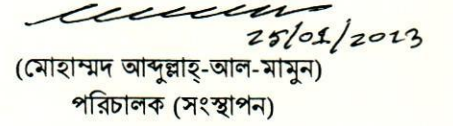 25/01/2023
(মোহাম্মদ আব্দুল্লাহ্-আল-মামুন)
পরিচালক (সংস্থাপন)